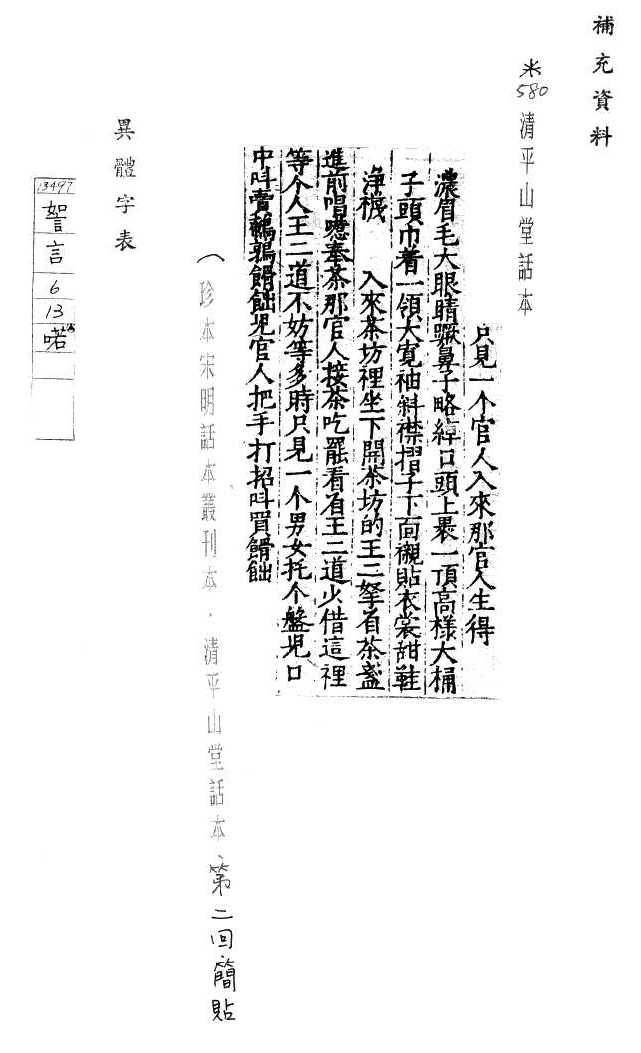 補充資料
米580 清平山堂話本
只見一个官人入來那官人生得
濃眉毛大眼睛蹶鼻子略綽口頭上裹一頂高樣大桶
子頭巾着一領大寬袖斜襟摺子下面襯貼衣裳甜鞋
浄襪 入來茶坊裡坐下開茶坊的王二拏着茶盞
進前唱喏奉茶那官人接茶吃罷看着王二道少借這裡
等个人王二道不妨等多時只見一个男女托个盤児口
中呌賣鵪鶉餶飿児官人把手打招呌買餶飿
(珍本宋明話本叢刊本.清平山堂話本、第二回、簡貼
異體字表
13497
言
6
13
喏